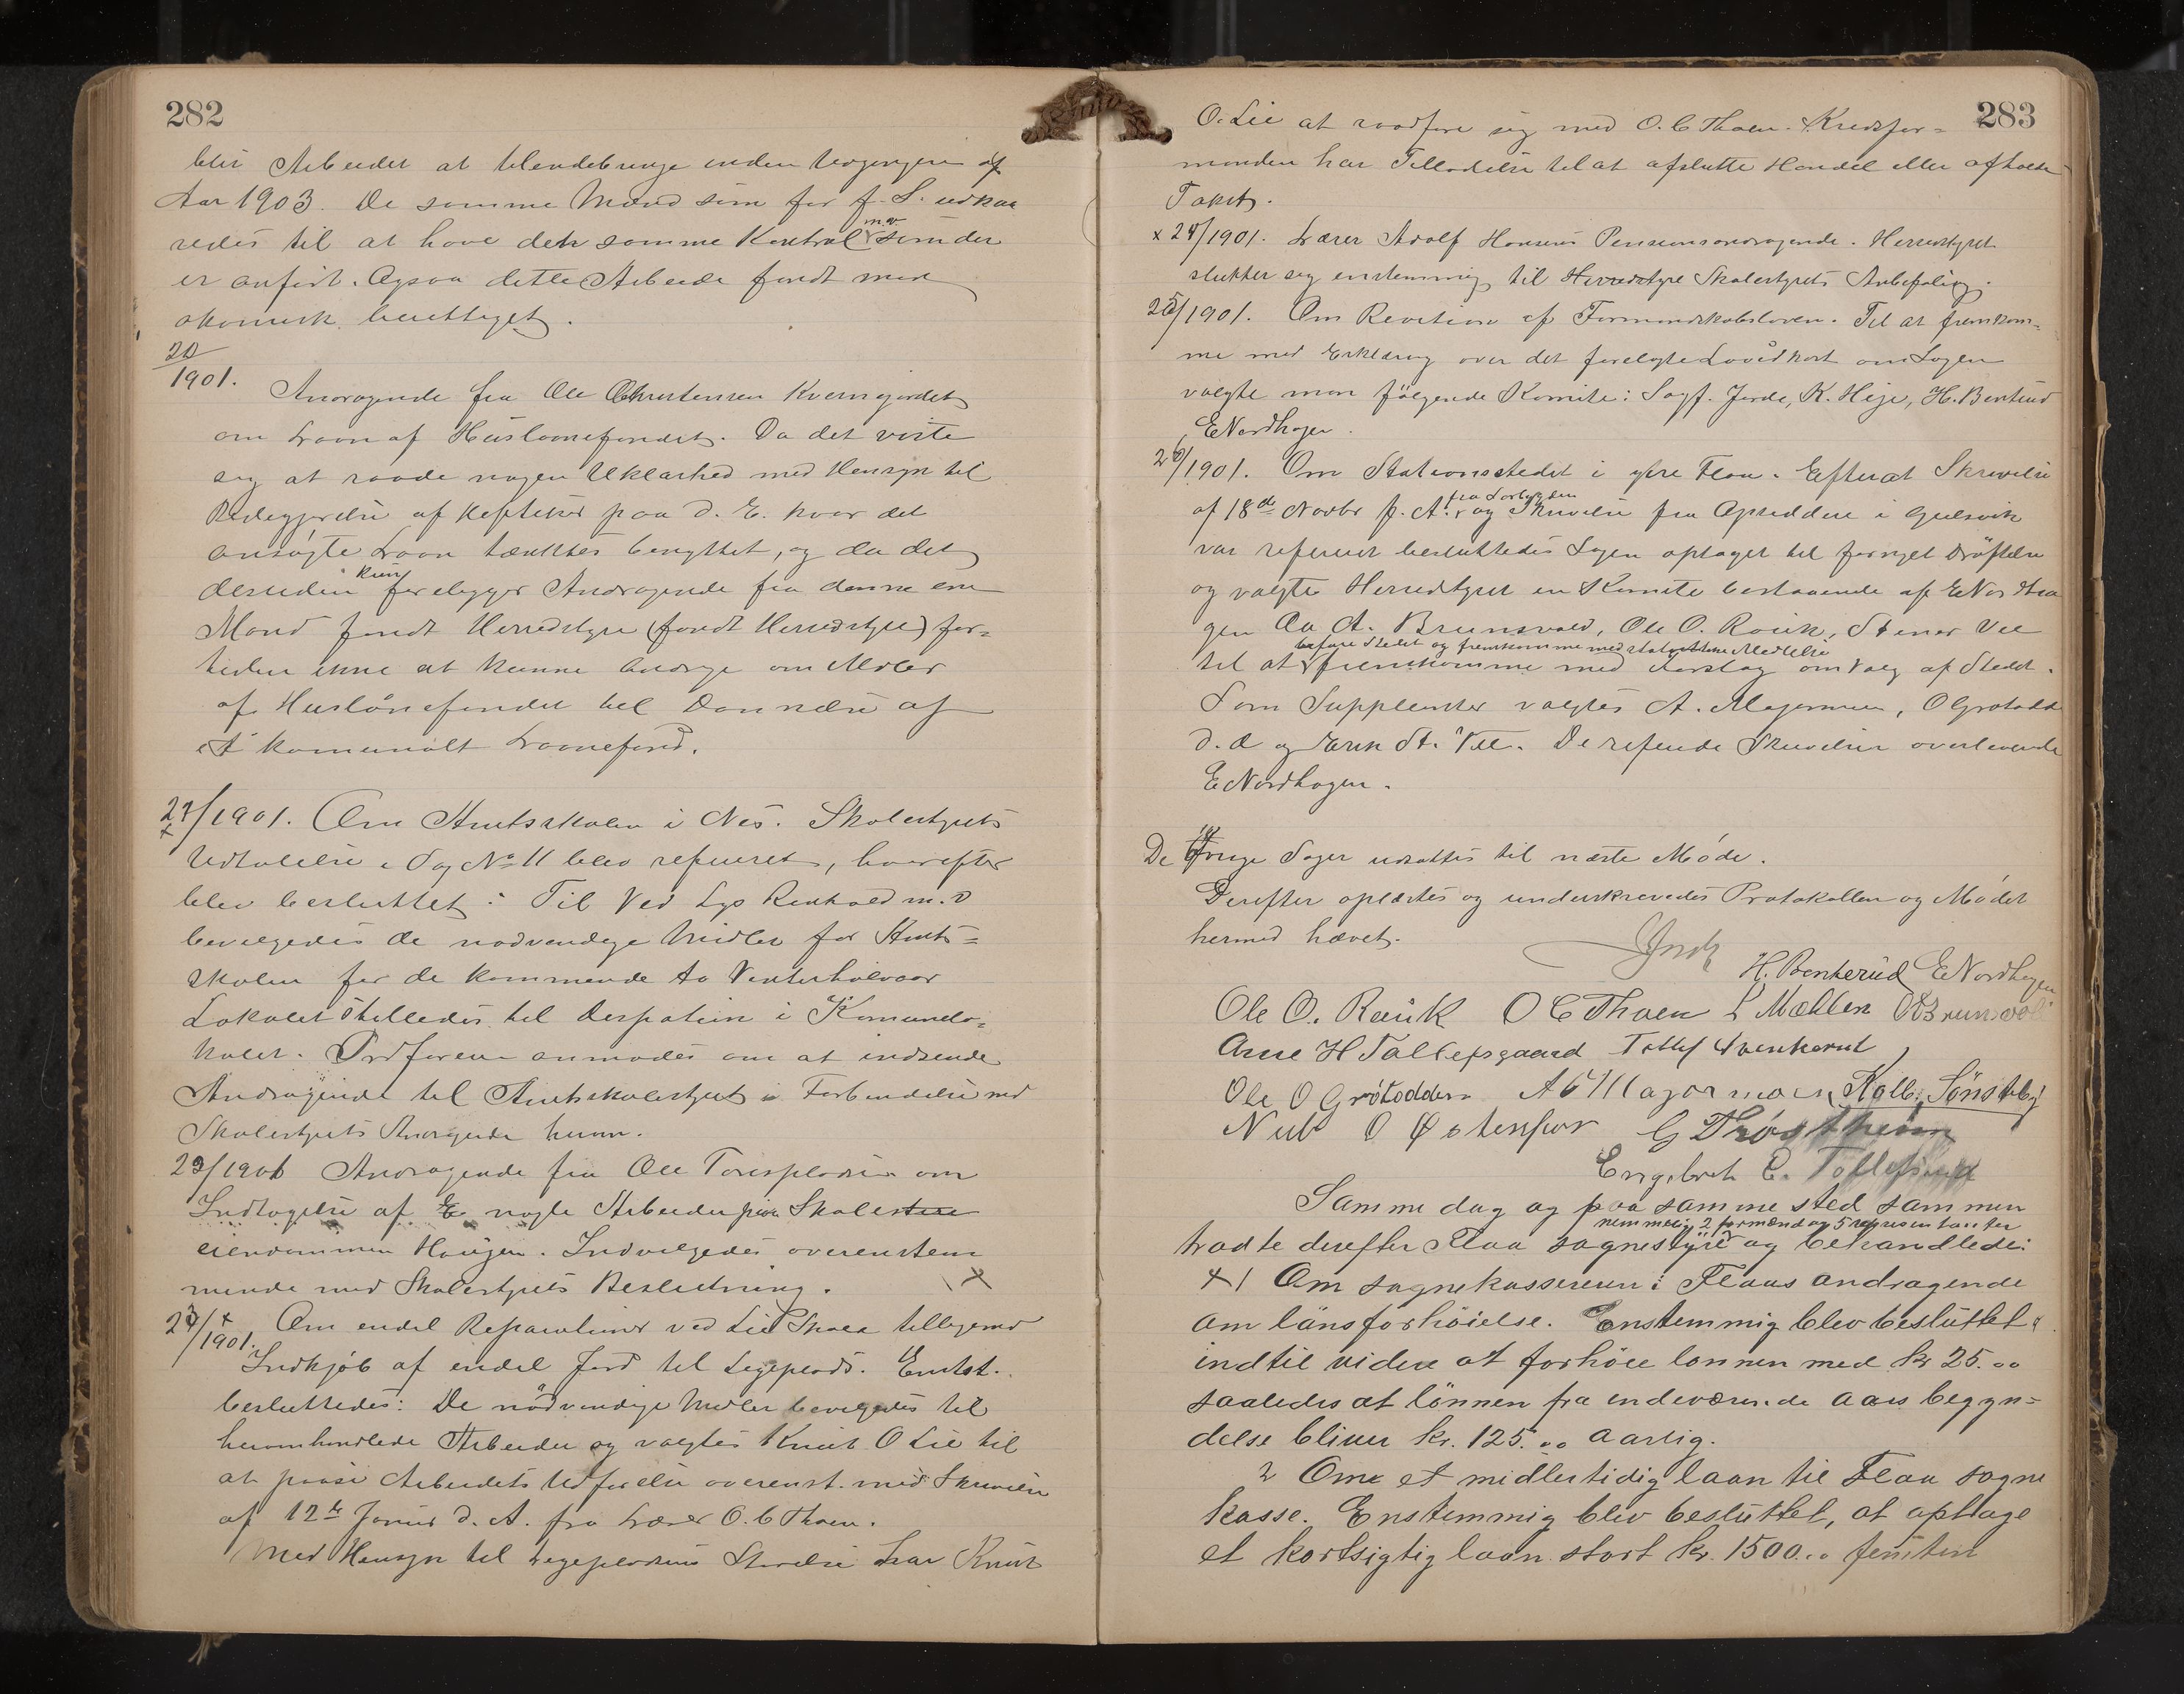 282
blir Arbeidet at tilendebringe inden Udgangen af
Aar 1903. De samme Mænd som for f. S. udkaa
redes til at have den samme Kontrol m.v. som der
er anført. Ogsaa dette Arbeide fandt man
økonomisk berettiget.
20/1901. Andragende fra Ole Christensen Kverngjordet
om Laan af Huslaanefondet. Da det viste
sig at raade nogen Uklarhed med Hensyn til
af paa d. E. hvor det
ansøgte Laan tænktes benyttet, og da det
desuden kun forelygger Andragende fra denne ene
Mand fandt Herredstyre (fandt Herredstyre) for-
tiden ikke at kunne andrage om Midler
af Huslånefondet til Dannelse af
et kommunalt Laanefond.
21/1901. Om Amtsskolen i Nes. Skolestyrets
Udtalelse i Sag No 11 blev refereret, hvorefter
blev besluttet: Til Ved Lys Renhold m.v
bevilgedes de nødvendige Midler for Amts=
skolen for de kommende to Vinterhalvaar
Lokalet stilledes til Disposition i Komunelo-
kalet. Ordføreren anmodes om at indsende
Andragende til Amtsskolestyret i Forbindelse med
Skolestyrets Andragende herom.
22/1901 Andragende fra Ole om
Indtagelse af nogle Arbeider paa Skole
eiendommen Haugen. Indvilgedes overenstem
mende med Skolestyrets Beslutning.
23/1901. Om endel Reparationer ved Lie Skole tilligemed
Indkjøb af endel Jord til Legeplads. Enst.
besluttedes: De nødvendige Midler bevilgedes til
heromhandlede Arbeider og valgtes Knut O Lie til
at paase Arbeidets Udførelse overenst. med Skrivelse
af 12te Januar d. A. fra Lærer O. C Thoen.
Med Hensyn til Legepladsens Størrelse har Knut
283
O. Lie at raadføre sig med O. C Thoen. Kredsfor=
manden har Tilladelse til at afslutte Handel eller afholde
Takst.
x 24/1901. Lærer Adolf Hansens Pensionsandragende. Herredstyret
slutter sig enstemmig til Herredstyre Skolestyrets Anbefaling.
25/1901. Om Revision af Formandskabsloven. Til at fremkom=
me med Erklæring over det forelagte Lovudkast om Sagen
valgte man følgende Komite: Sagf. Jorde, K. Heje, H. Benterud
E Nordhagen.
26/1901. Om Stationsstedet i ytre Flaa. Efterat Skrivelse
af 18de Novbr f. A. og Skrivelse fra Opsiddere i Gulsvik
var refereret besluttedes Sagen optaget til fornyet Drøftelse
og valgte Herredstyret en Komite bestaaende af E Nordha
gen A. Brunsvold, Ole O. Roiik, Stener Vee
befare Stedet og fremkomme med
til at fremkomme med Forslag om Valg af Stedet.
Som Supplenter valgtes A. Magerman, O Grøtodd
d. æ og Erik St. Vee. De refererede Skrivelser overleveredes
E Nordhagen.
De øvrige Sager udsattes til næste Møde.
Derefter oplæstes og underskrevedes Protokollen og Mødet
hermed hævet.
H. Benterud E Nordhagen
Ole O. Roiik O C Thoen L Mæhlen Brunsvold
Arne H Tollefsgaard
Ole O Grøtodden Magerman Kolb. Sønsteby
O Østenfor G Trøstheim
Engebret E. Tollefsrud
Samme dag og paa samme sted sammen
nemmelig 2 formænd og 5 representanter
traadte derefter Flaa sognestyre og behandlede:
x 1 Om sognekassereren i Flaas andragende
om lønsforhøielse. Enstemmig blev besluttet:
indtil videre at forhöie lønnen med kr 25.00
saaledes at lønnen fra indeværende aars begyn=
delse bliver kr. 125.00 aarlig.
2 Om et midlertidig laan til Flaa sogne
kasse. Enstemmig blev besluttet, at optage
et kortsigtig laan stort kr. 1500.00 femten